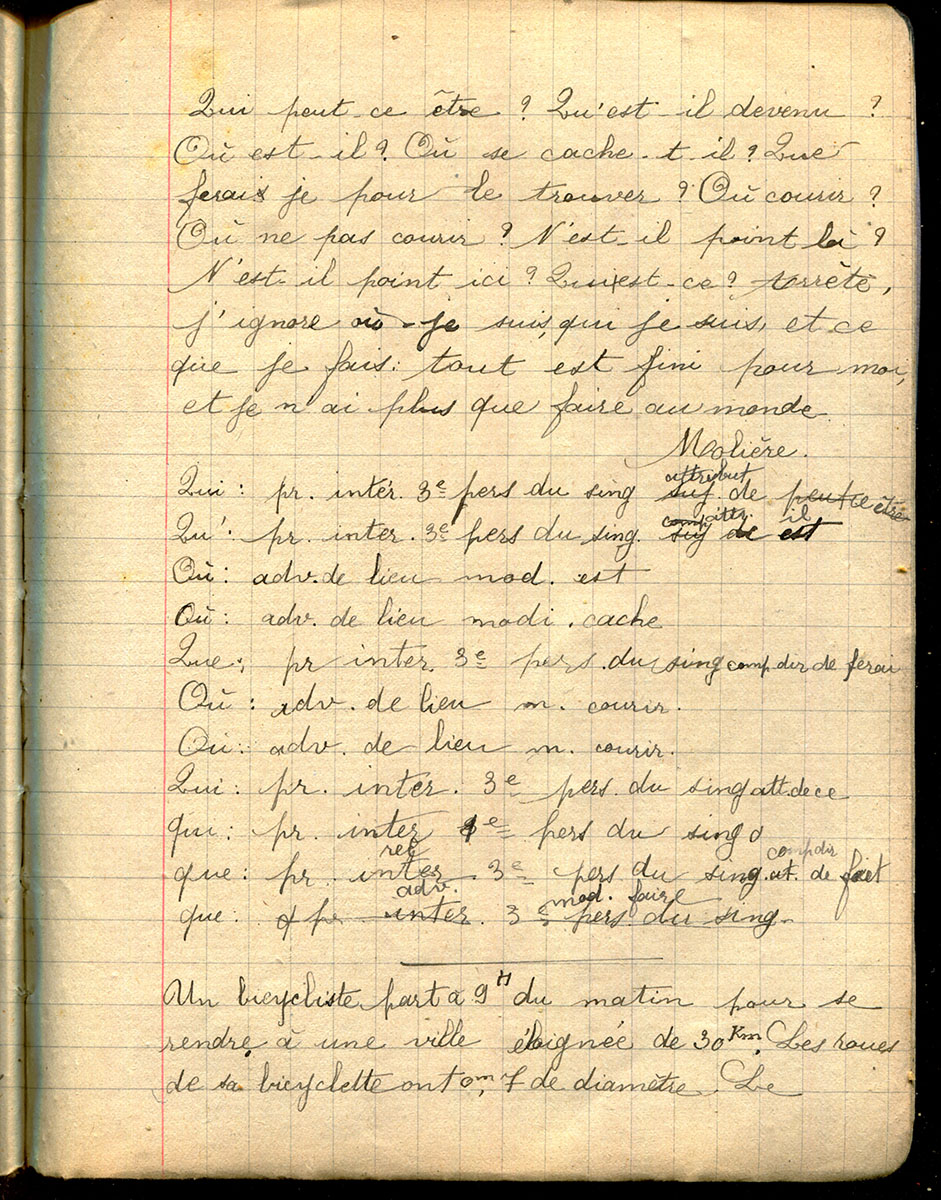 Qui peut-ce être ? Qu'est-il devenu ?
Où est-il ? Où se cache-t-il ? Que
ferais je pour le trouver ? Où courir ?
Où ne pas courir ? N'est-il point là ?
N'est-il point ici ? Qui est-ce ? arrête,
j'ignore où je suis, qui je suis, et ce
que je fais : tout est fini pour moi,
et je n'ai plus que faire au monde
Molière.
attribut
Qui : pr. inter. 3e pers du sing suj. de peut ce être
comp attr. il
Qu' : pr. inter. 3e pers du sing. suj de est
Où : adv. de lieu mod. est
Où : adv. de lieu modi. cache
Que : pr inter. 3e pers. du sing comp dir de ferai
Où : adv. de lieu m. courir.
Où : adv. de lieu m. courir.
Qui : pr. inter. 3e pers. du sing att. de ce
qui : pr. inter 1e pers du sing
rel comp dir
que : pr. inter 3e pers du sing. at. de fait
adv. mod. faire
que : pr inter. 3e pers. du sing.
Un bicycliste part à 9H du matin pour se
rendre à une ville éloignée de 30Km. Les roues
de sa bicyclette ont 0m,7 de diamètre. Le